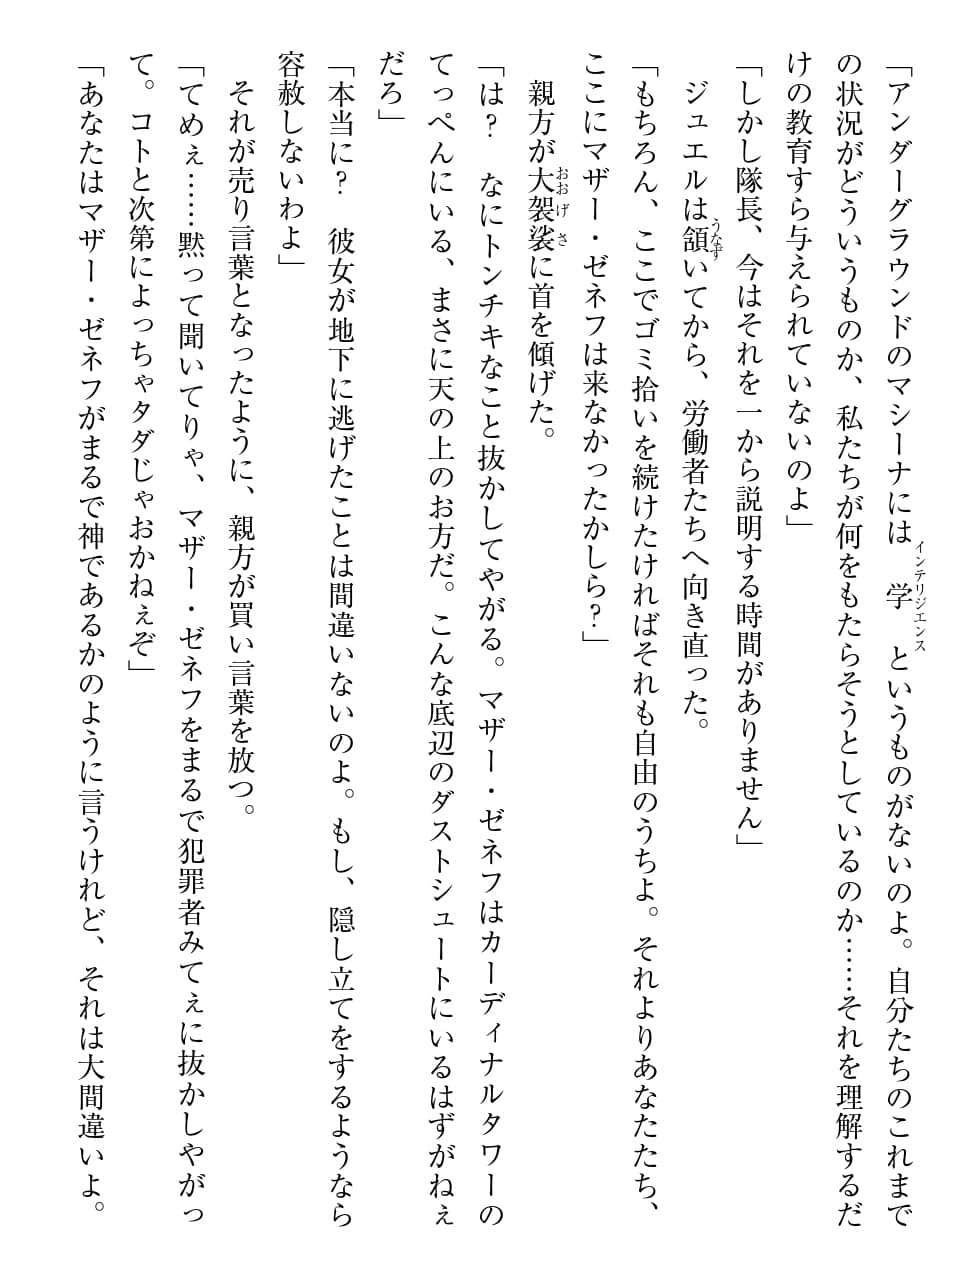 「アンダーグラウンドのマシーナには　学　というものがないのよ。自分たちのこれまで
の状況がどういうものか、私たちが何をもたらそうとしているのか……それを理解するだ
けの教育すら与えられていないのよ」
「しかし隊長、今はそれを一から説明する時間がありません」
　ジュエルは頷いてから、労働者たちへ向き直った。
「もちろん、ここでゴミ拾いを続けたければそれも自由のうちよ。それよりあなたたち、
ここにマザー・ゼネフは来なかったかしら？」
　親方が大袈裟に首を傾げた。
「は？　なにトンチキなこと抜かしてやがる。マザー・ゼネフはカーディナルタワーの
てっぺんにいる、まさに天の上のお方だ。こんな底辺のダストシュートにいるはずがねぇ
だろ」
「本当に？　彼女が地下に逃げたことは間違いないのよ。もし、隠し立てをするようなら
容赦しないわよ」
　それが売り言葉となったように、親方が買い言葉を放つ。
「てめぇ……黙って聞いてりゃ、マザー・ゼネフをまるで犯罪者みてぇに抜かしやがっ
て。コトと次第によっちゃタダじゃおかねぇぞ」
「あなたはマザー・ゼネフがまるで神であるかのように言うけれど、それは大間違いよ。
インテリジエンス
うなず
おおげさ